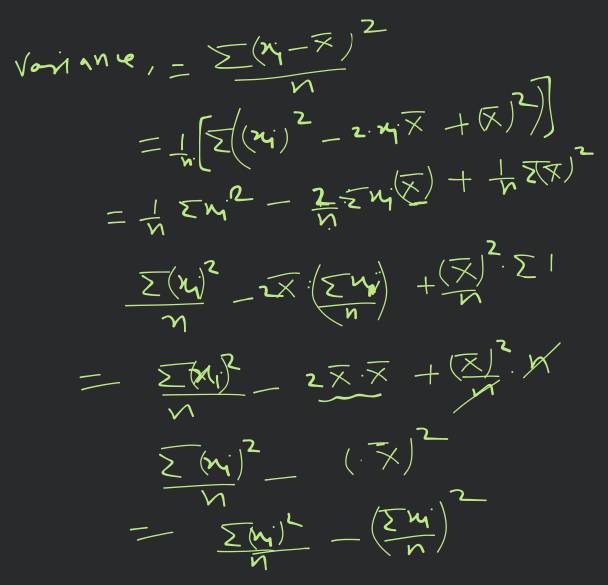 Variance, = Σ(xᵢ - x̄)² / n
= 1/n [Σ((xᵢ)² - 2·xᵢx̄ + (x̄)²)]
= 1/n Σxᵢ² - 2/n Σxᵢ(x̄) + 1/n Σ(x̄)²
Σ(xᵢ)² / n - 2x̄·(Σxᵢ / n) + (x̄)² / n · Σ1
= Σ(xᵢ)² / n - 2x̄·x̄ + (x̄)² / n · n
Σ(xᵢ)² / n - (·x̄)²
= Σ(xᵢ)² / n - (Σxᵢ / n)²